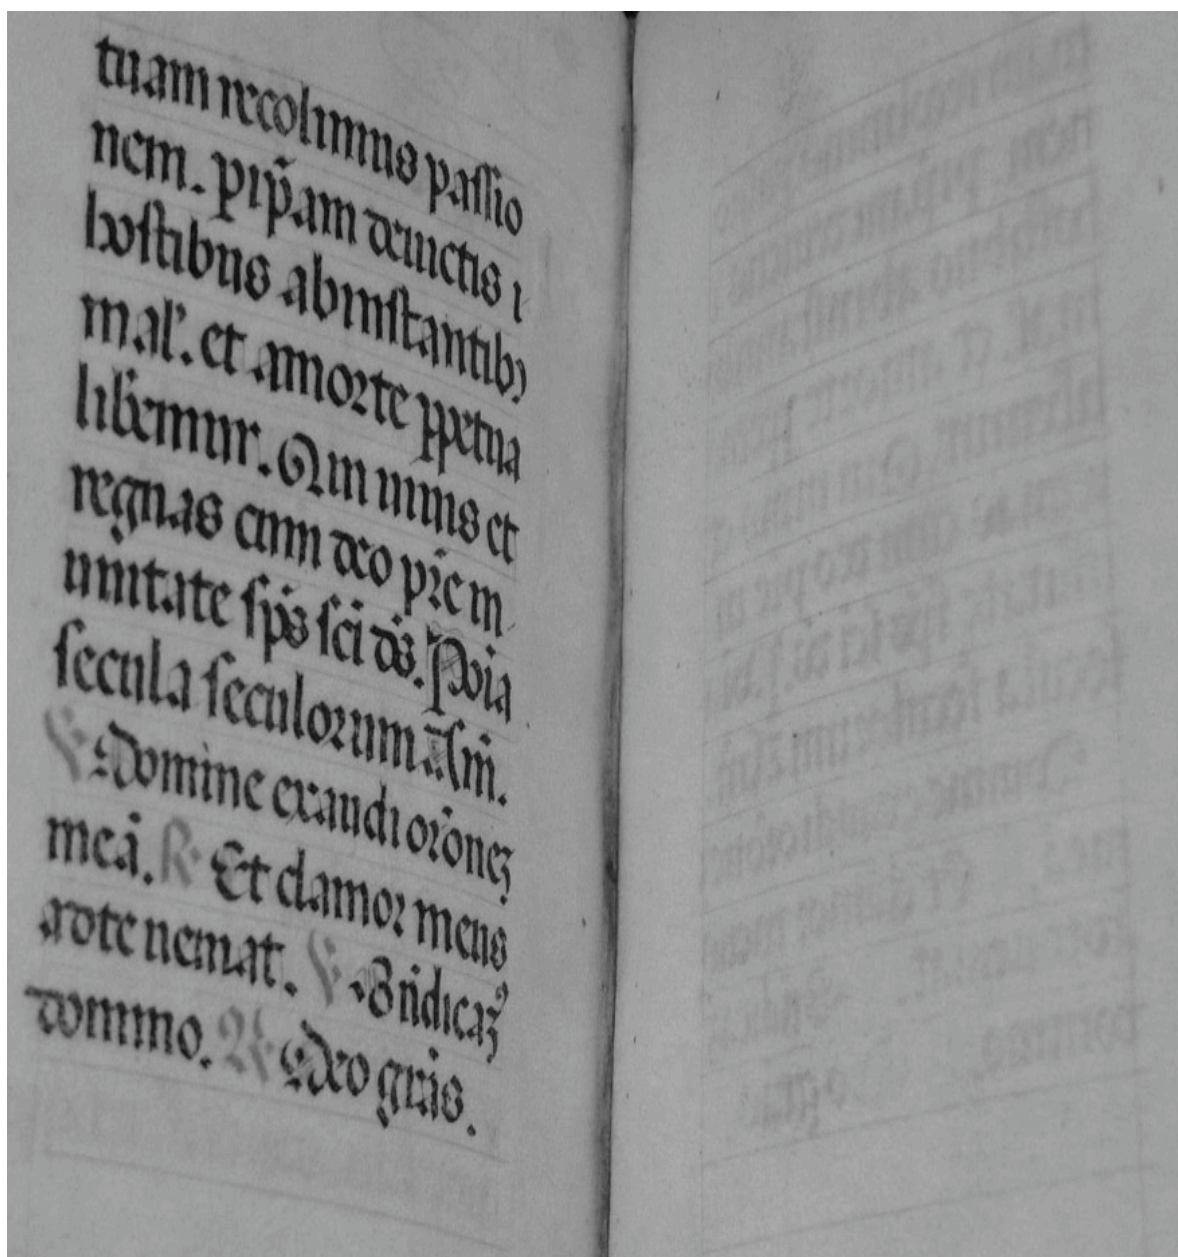 tuam recolimus passio
nem. p ip̃am deuictis i
hostibus ab instantibȝ
mal'. et a morte ꝑpetua
lib̃emur. Qui uiuis et
regnas cum deo pr̃e in
unitate sp̃s sc̃i ds̃. Per oĩa
secula seculorum am̃.
V Domine exaudi or̃oneȝ
meã. R Et clamor meus
ad te ueniat. V Bñdicaꝰȝ
domino. R Deo gr̃as.